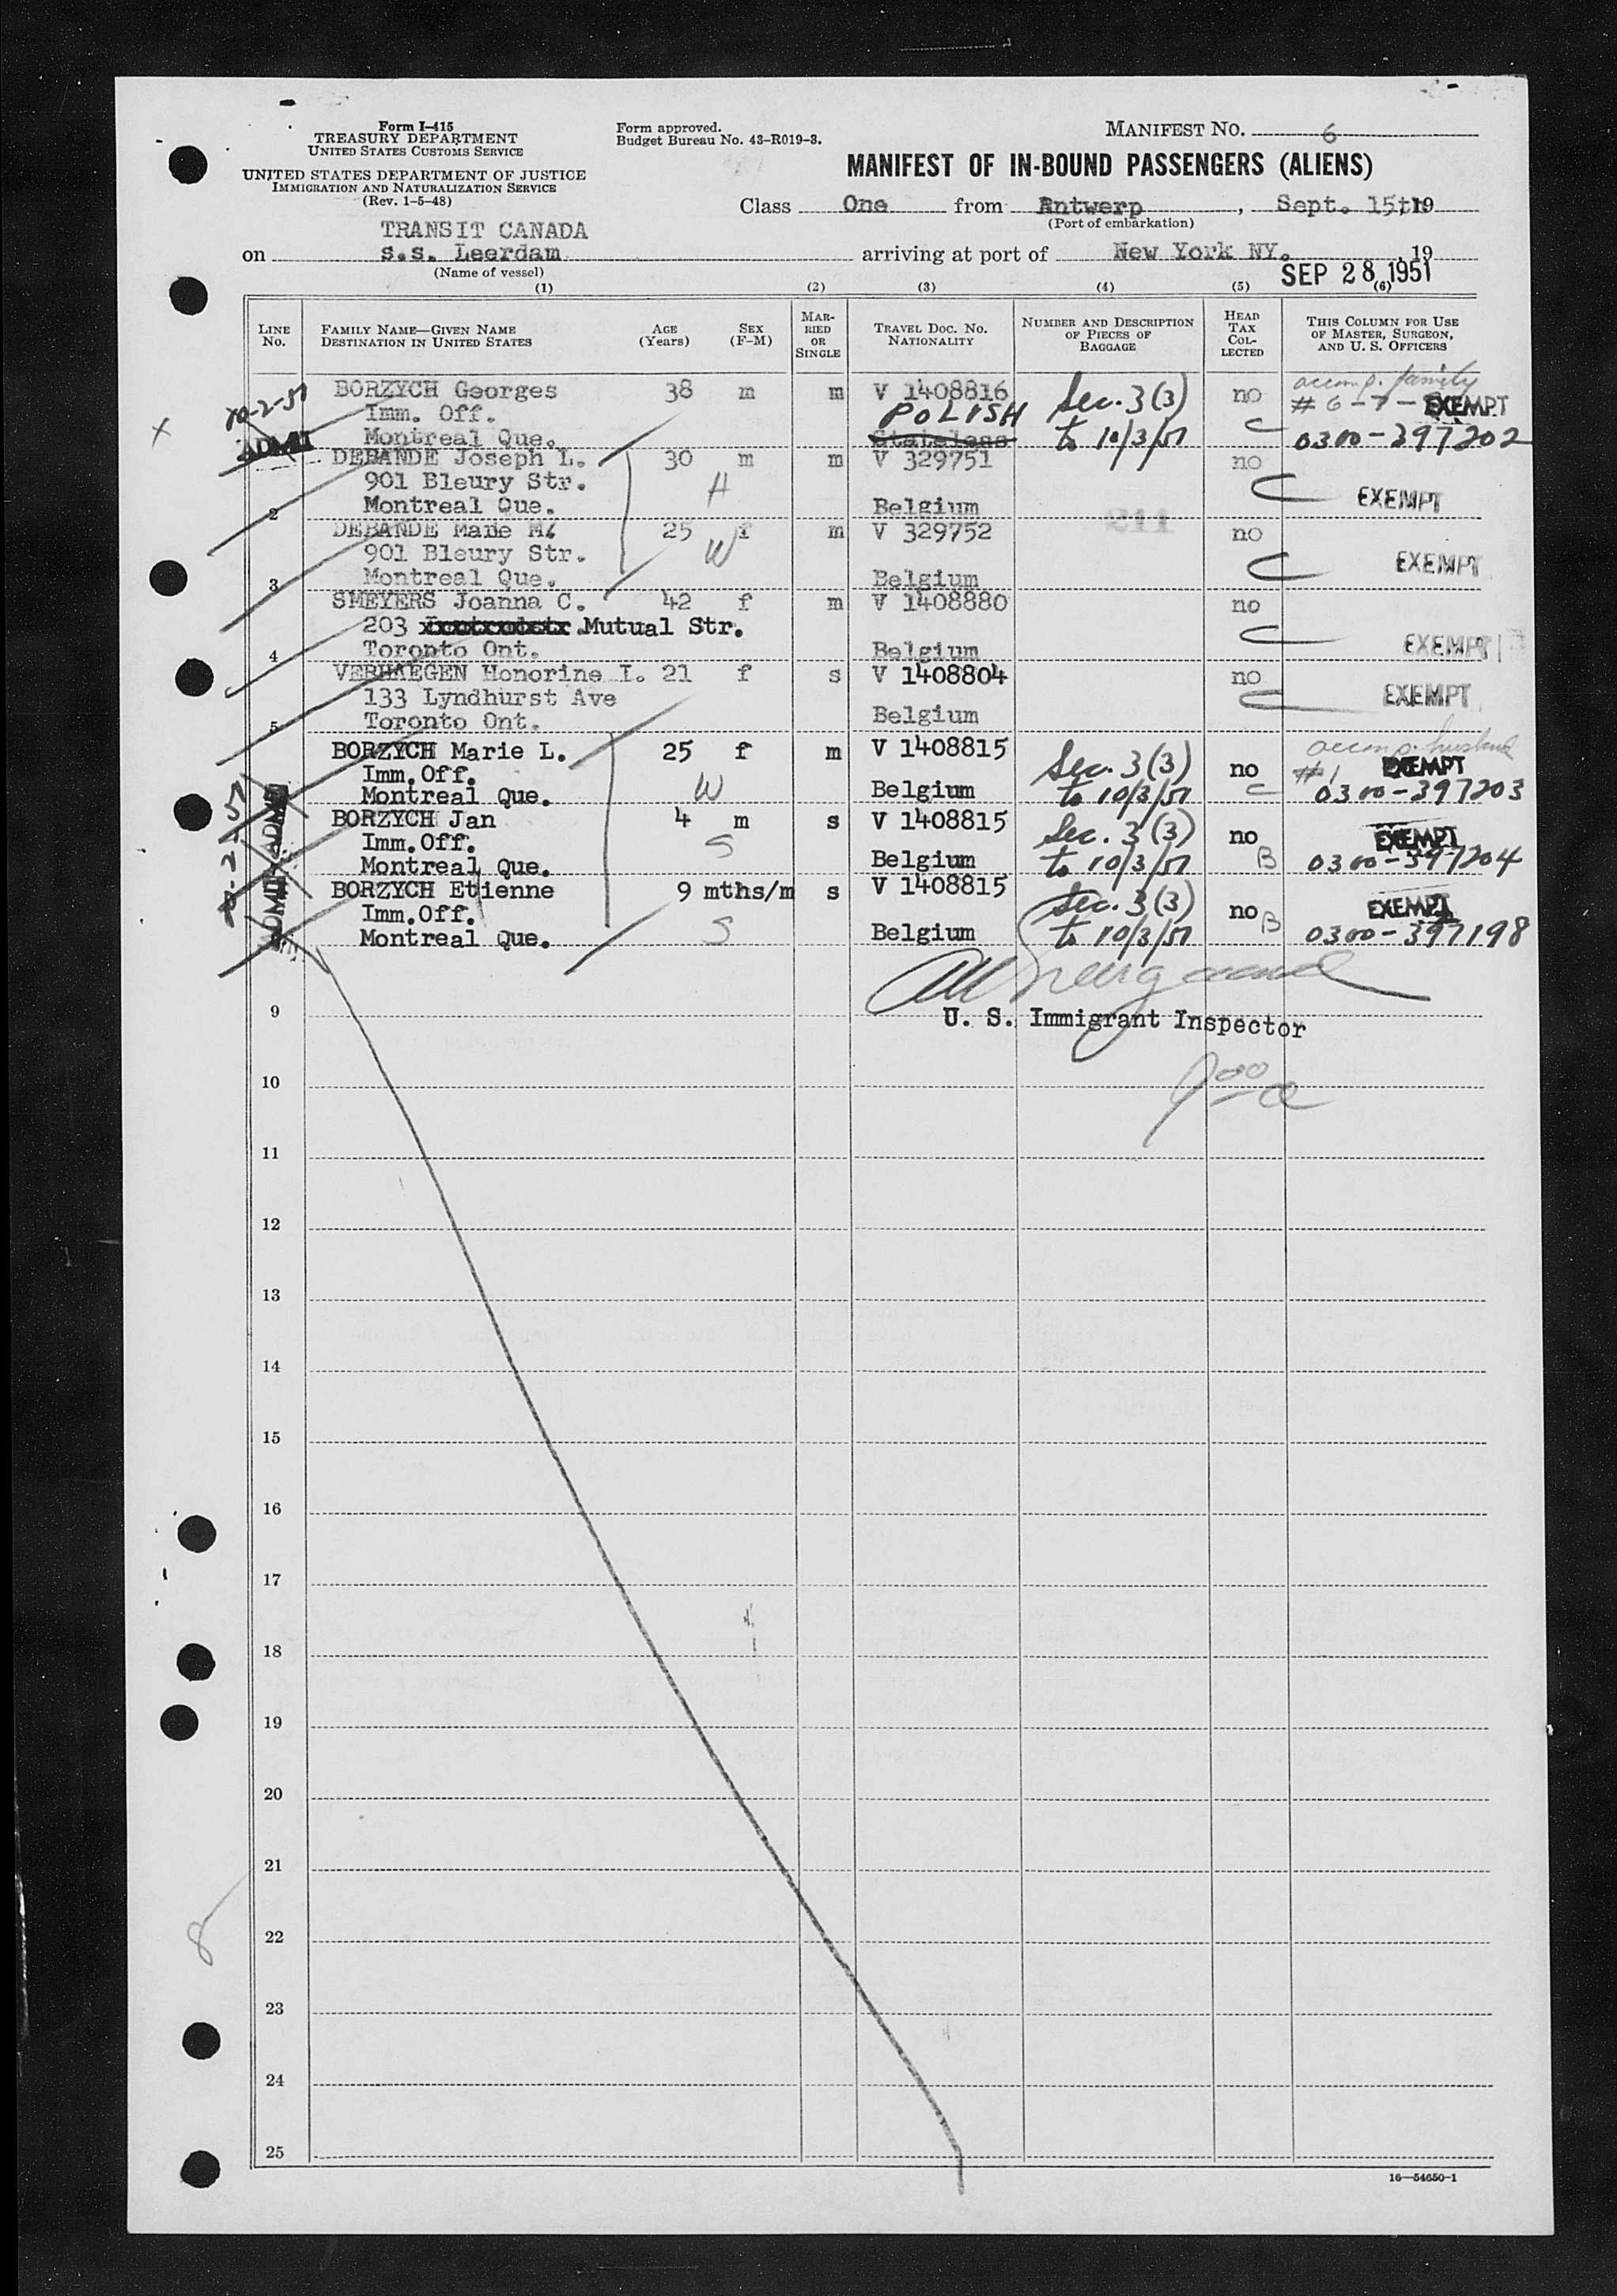 Form I-415
TREASURY DEPARTMENT
UNITED STATES CUSTOMS SERVICE
UNITED STATES DEPARTMENT OF JUSTICE
IMMIGRATION AND NATURALIZATION SERVICE
(Rev. 1-5-48)
Form approved.
Budget Bureau No. 43-R019-3.
MANIFEST NO. 6
MANIFEST OF IN-BOUND PASSENGERS (ALIENS)
Class One from Antwerp, Sept. 15th 19
(Port of embarkation)
TRANSIT CANADA
on s.s. Leerdam arriving at port of New York NY. , 19
(Name of vessel)
SEP 28 1951
(1) (2) (3) (4) (5) (6)
LINE No. FAMILY NAME—GIVEN NAME DESTINATION IN UNITED STATES AGE (Years) SEX (F-M) MARRIED OR SINGLE TRAVEL DOC. NO. NATIONALITY NUMBER AND DESCRIPTION OF PIECES OF BAGGAGE HEAD TAX COLLECTED THIS COLUMN FOR USE OF MASTER, SURGEON, AND U. S. OFFICERS
10-2-51 BORZYCH Georges 38 m m V 1408816 Sec. 3(3) no accomp. family
Imm. Off. POLISH # 6-7- EXEMPT
x ADMIT Montreal Que. Stateless to 10/3/51 C 0300-397202
DEBANDE Joseph L. 30 m m V 329751 no
901 Bleury Str. H C EXEMPT
2 Montreal Que. Belgium
211
DEBANDE Marie M. 25 f m V 329752 no
901 Bleury Str. W C EXEMPT
3 Montreal Que. Belgium
SMEYERS Joanna C. 42 f m V 1408880 no
203 Mutual Str. C EXEMPT
4 Toronto Ont. Belgium
VERHAEGEN Honorine I. 21 f s V 1408804 no
133 Lyndhurst Ave C EXEMPT
5 Toronto Ont. Belgium
BORZYCH Marie L. 25 f m V 1408815 Sec. 3(3) no accomp. husband
Imm.Off. W #1 EXEMPT
Montreal Que. Belgium to 10/3/51 C 0300-397203
BORZYCH Jan 4 m s V 1408815 Sec. 3(3) no EXEMPT
Imm.Off. S
Montreal Que. Belgium to 10/3/51 B 0300-397204
BORZYCH Etienne 9 mths/m s V 1408815 Sec. 3(3) no B EXEMPT
Imm.Off. S
Montreal Que. Belgium to 10/3/51 0300-397198
ADMIT ADMIT
9 U. S. Immigrant Inspector
10
11
12
13
14
15
16
17
18
19
20
21
22
8
23
24
25
16—54650-1